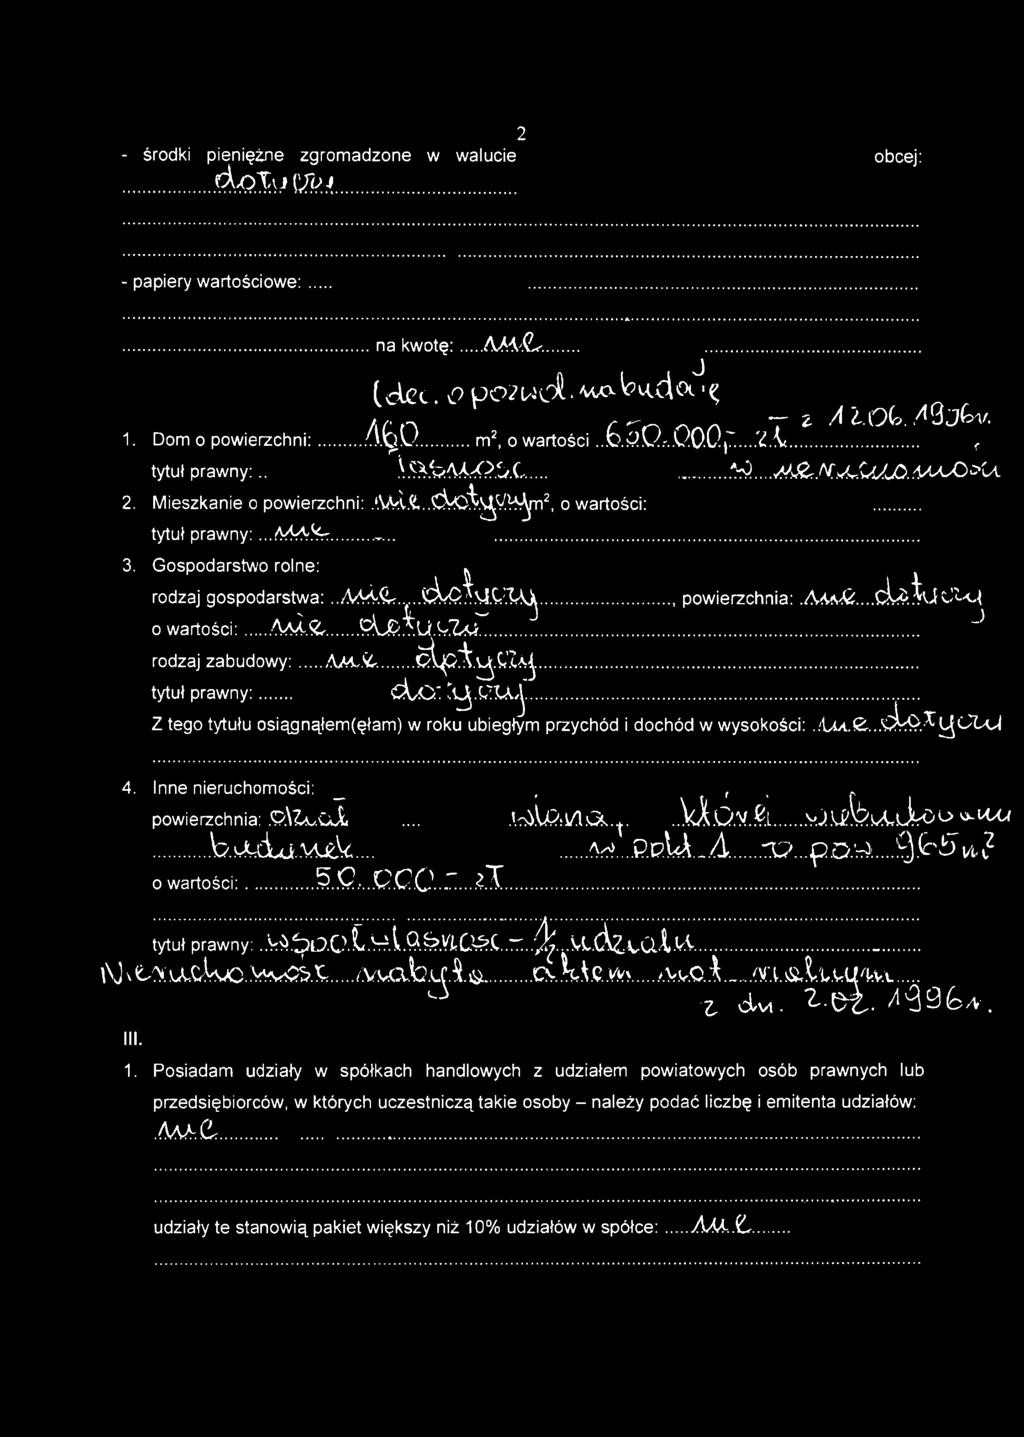 2
- środki pieniężne zgromadzone w walucie obcej:
- papiery wartościowe: .....
na kwotę: .....nie.......
(dec. o pozwol. na budowę
z 12.06.1996r.
1. Dom o powierzchni: .........160......... m², o wartości ..650.000,- zł
tytuł prawny: .. w nieruchomości
2. Mieszkanie o powierzchni: .nie..dotyczy m², o wartości: ..........
tytuł prawny: ...nie...........
3. Gospodarstwo rolne:
rodzaj gospodarstwa: ..nie....dotyczy......................, powierzchnia: .nie...dotyczy
o wartości: .....nie......dotyczy
rodzaj zabudowy: .....nie......dotyczy
tytuł prawny: ...... dotyczy
Z tego tytułu osiągnąłem(ęłam) w roku ubiegłym przychód i dochód w wysokości: ..nie...dotyczy
4. Inne nieruchomości:
powierzchnia: ..... której
budynek w pkt 1 o pow 965 m²
o wartości: ...........50.000,- zł
tytuł prawny: ..współwłasność - ½ udziału
Nieruchomość nabyta aktem not
z dn. 2.02.1996r.
III.
1. Posiadam udziały w spółkach handlowych z udziałem powiatowych osób prawnych lub
przedsiębiorców, w których uczestniczą takie osoby – należy podać liczbę i emitenta udziałów:
nie
udziały te stanowią pakiet większy niż 10% udziałów w spółce: .....nie........